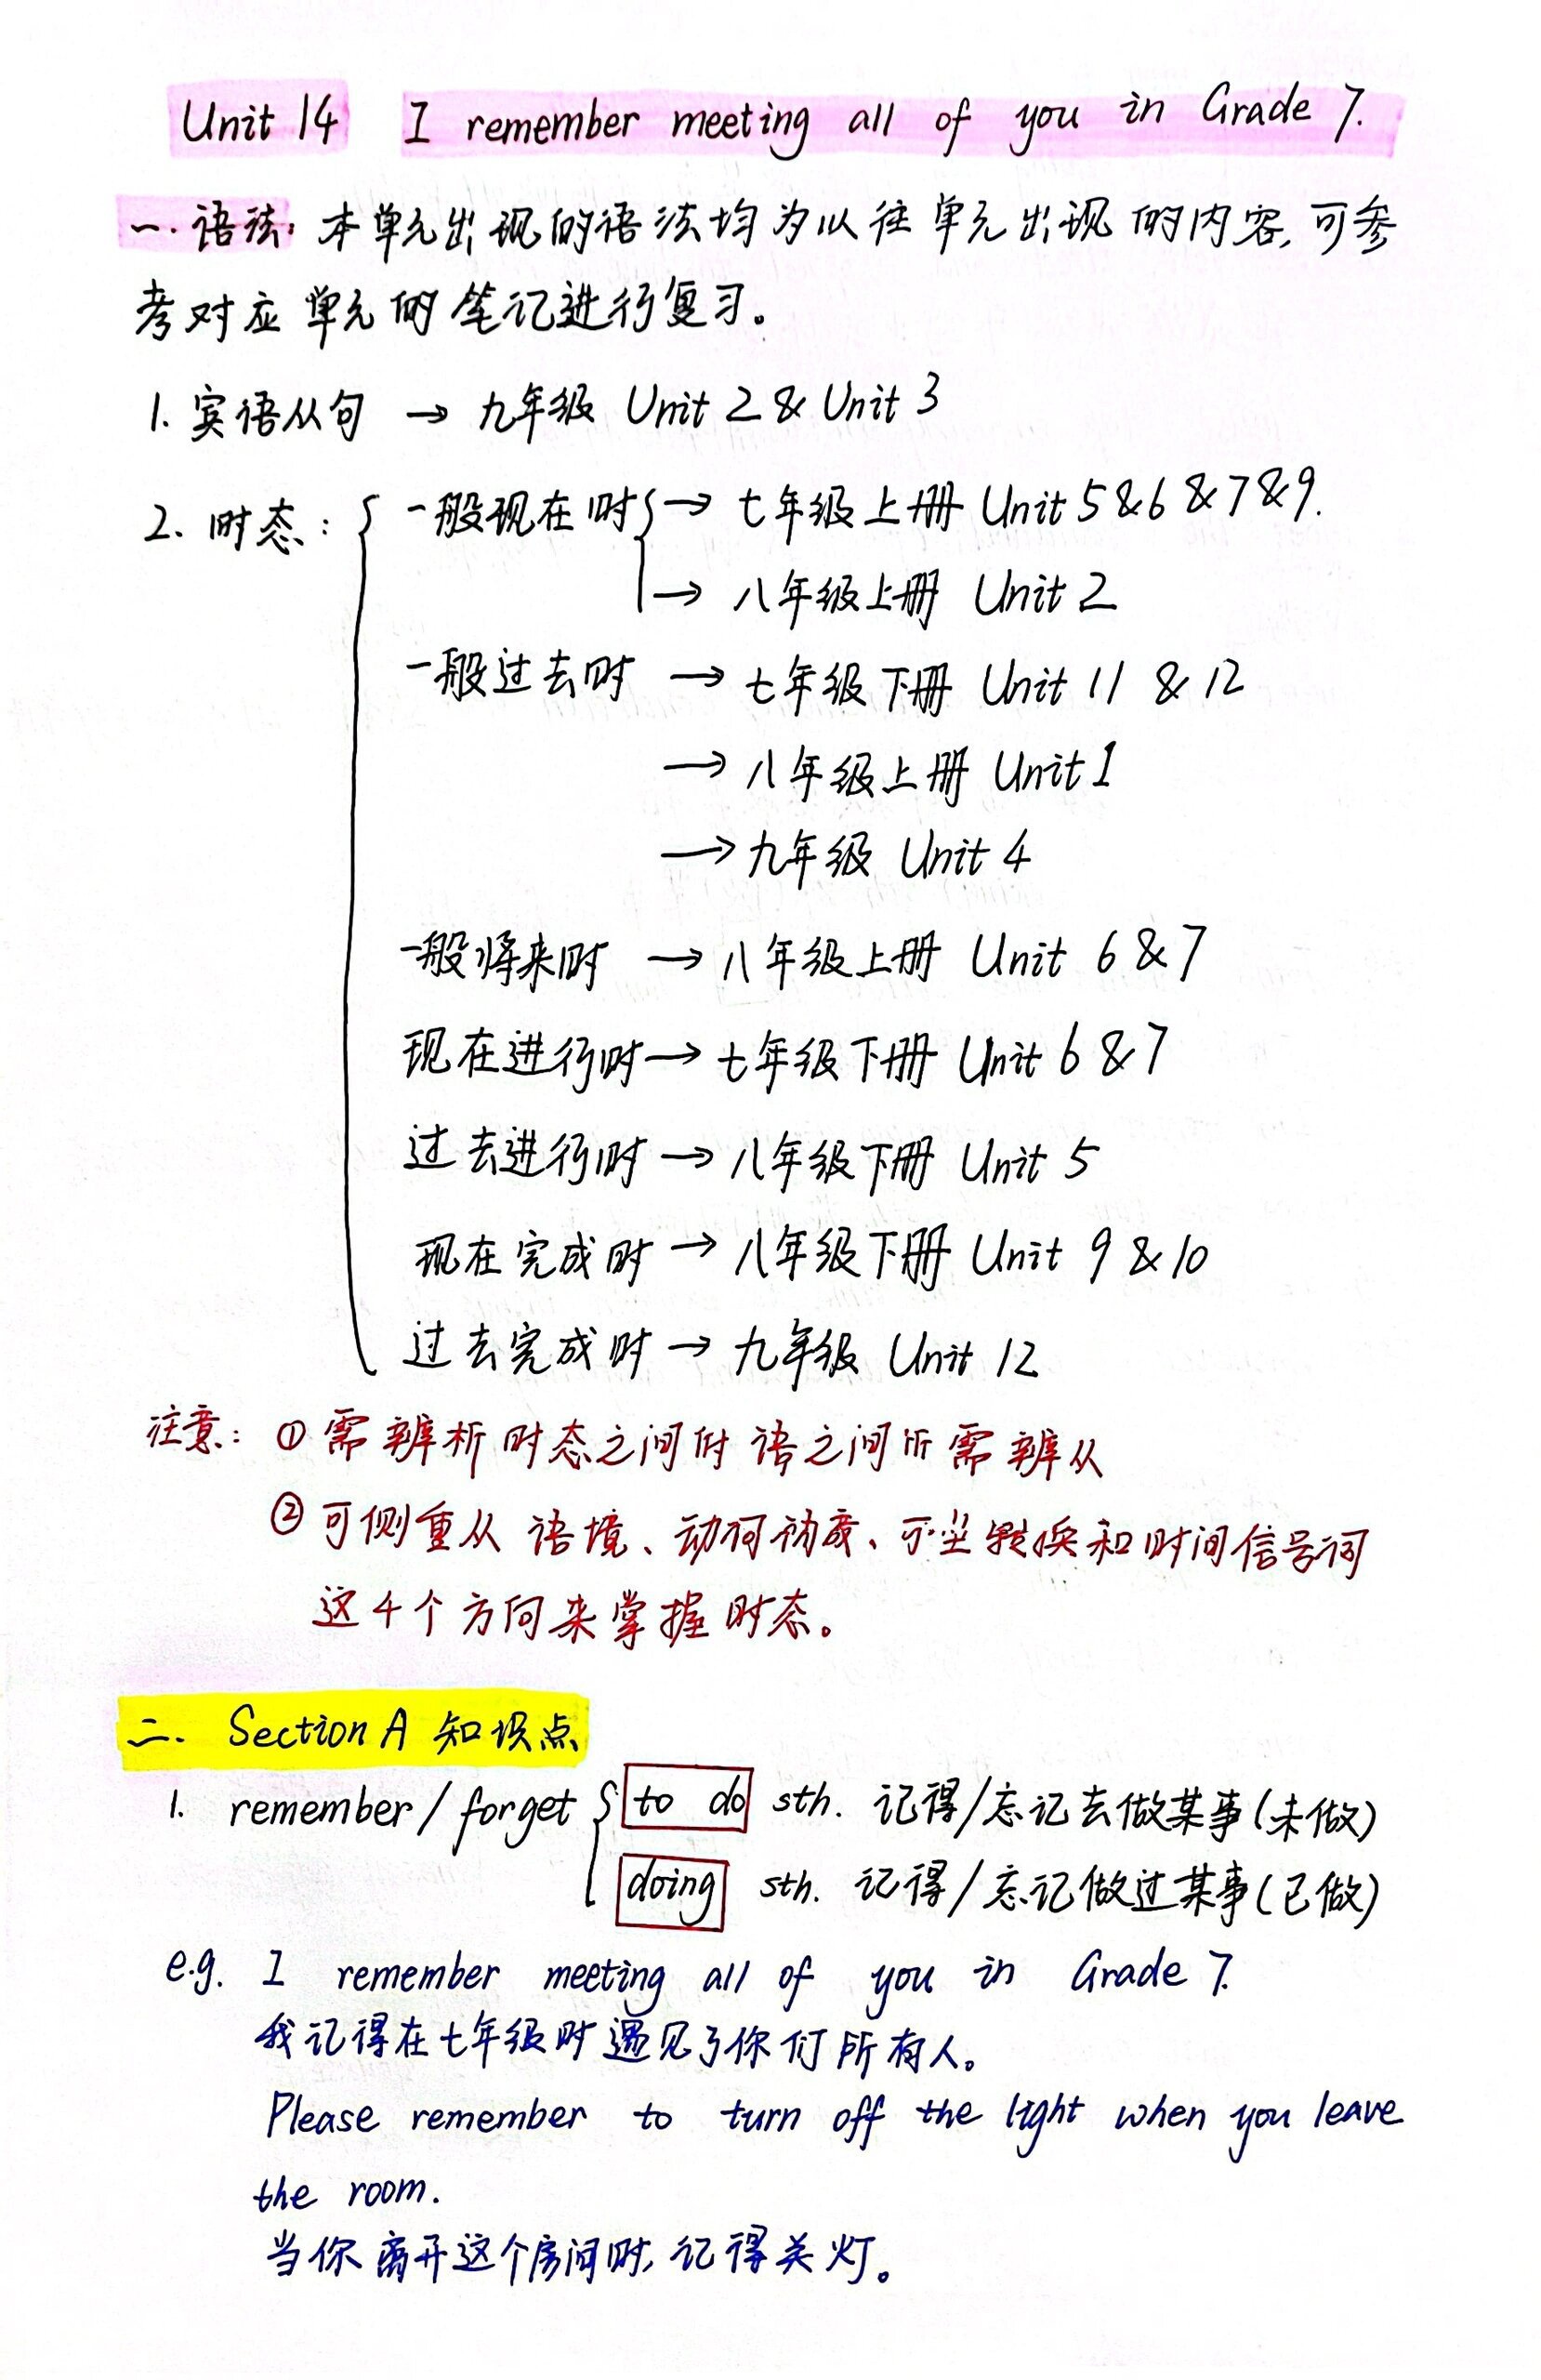 Unit 14 I remember meeting all of you in Grade 7.
一. 语法: 本单元出现的语法均为以往单元出现的内容,可参
考对应单元的笔记进行复习。
1. 宾语从句 → 九年级 Unit 2 & Unit 3
2. 时态: { 一般现在时 { → 七年级上册 Unit 5 & 6 & 7 & 9.
→ 八年级上册 Unit 2
一般过去时 → 七年级下册 Unit 11 & 12
→ 八年级上册 Unit 1
→ 九年级 Unit 4
一般将来时 → 八年级上册 Unit 6 & 7
现在进行时 → 七年级下册 Unit 6 & 7
过去进行时 → 八年级下册 Unit 5
现在完成时 → 八年级下册 Unit 9 & 10
过去完成时 → 九年级 Unit 12
注意: ① 需辨析时态之间 语之间 需辨从
② 可侧重从语境、动词 、 转换和时间信号词
这4个方向来掌握时态。
二. Section A 知识点
1. remember / forget { to do sth. 记得/忘记去做某事(未做)
doing sth. 记得/忘记做过某事(已做)
e.g. I remember meeting all of you in Grade 7.
我记得在七年级时遇见了你们所有人。
Please remember to turn off the light when you leave
the room.
当你离开这个房间时,记得关灯。